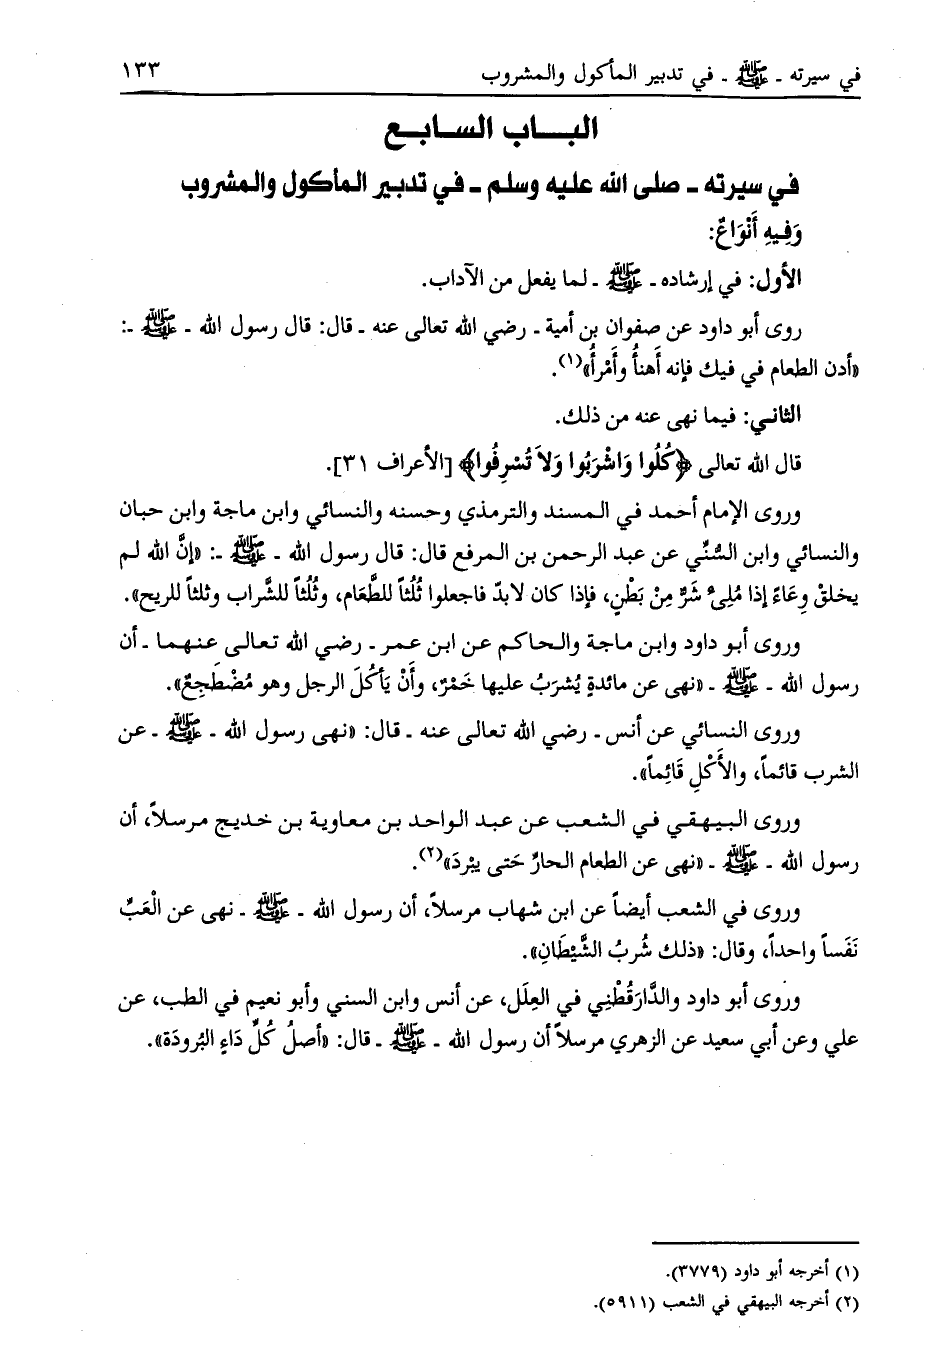 في سيرته ـ ﷺ ـ في تدبير المأكول والمشروب ١٣٣
البـــاب السـابـــع
في سيرته ـ صلى الله عليه وسلم ـ في تدبير المأكول والمشروب
وَفِيهِ أَنْوَاعٌ:
الأول: في إرشاده ـ ﷺ ـ لما يفعل من الآداب.
روى أبو داود عن صفوان بن أمية ـ رضي الله تعالى عنه ـ قال: قال رسول الله ـ ﷺ ـ:
«أدن الطعام في فيك فإنه أَهنأُ وأَمْرأُ»(١).
الثاني: فيما نهى عنه من ذلك.
قال الله تعالى ﴿كُلُوا وَاشْرَبُوا وَلاَ تُسْرِفُوا﴾ [الأعراف ٣١].
وروى الإمام أحمد في المسند والترمذي وحسنه والنسائي وابن ماجة وابن حبان
والنسائي وابن السُّنِّي عن عبد الرحمن بن المرفع قال: قال رسول الله ـ ﷺ ـ: «إنَّ الله لم
يخلقْ وِعَاءً إذا مُلِئ شَرٌّ مِنْ بَطْنٍ، فإذا كان لابدّ فاجعلوا ثُلُثاً للطَّعام، وثُلُثاً للشَّراب وثلثاً للريح».
وروى أبو داود وابن ماجة والحاكم عن ابن عمر ـ رضي الله تعالى عنهما ـ أن
رسول الله ـ ﷺ ـ «نهى عن مائدةٍ يُشرَبُ عليها خَمْرٌ، وأَنْ يَأكُلَ الرجل وهو مُضْطَجِعٌ».
وروى النسائي عن أنس ـ رضي الله تعالى عنه ـ قال: «نهى رسول الله ـ ﷺ ـ عن
الشرب قائماً، والأَكْلِ قَائِماً».
وروى البيهقي في الشعب عن عبد الواحد بن معاوية بن خديج مرسلاً، أن
رسول الله ـ ﷺ ـ «نهى عن الطعام الحارِّ حَتى يبْردَ»(٢).
وروى في الشعب أيضاً عن ابن شهاب مرسلاً، أن رسول الله ـ ﷺ ـ نهى عن الْعَبِّ
نَفَساً واحداً، وقال: «ذلك شُربُ الشَّيْطَانِ».
وروى أبو داود والدَّارَقُطْنِي في العِلَل، عن أنس وابن السني وأبو نعيم في الطب، عن
علي وعن أبي سعيد عن الزهري مرسلاً أن رسول الله ـ ﷺ ـ قال: «أصلُ كُلِّ دَاءٍ البُرودَة».
(١) أخرجه أبو داود (٣٧٧٩).
(٢) أخرجه البيهقي في الشعب (٥٩١١).